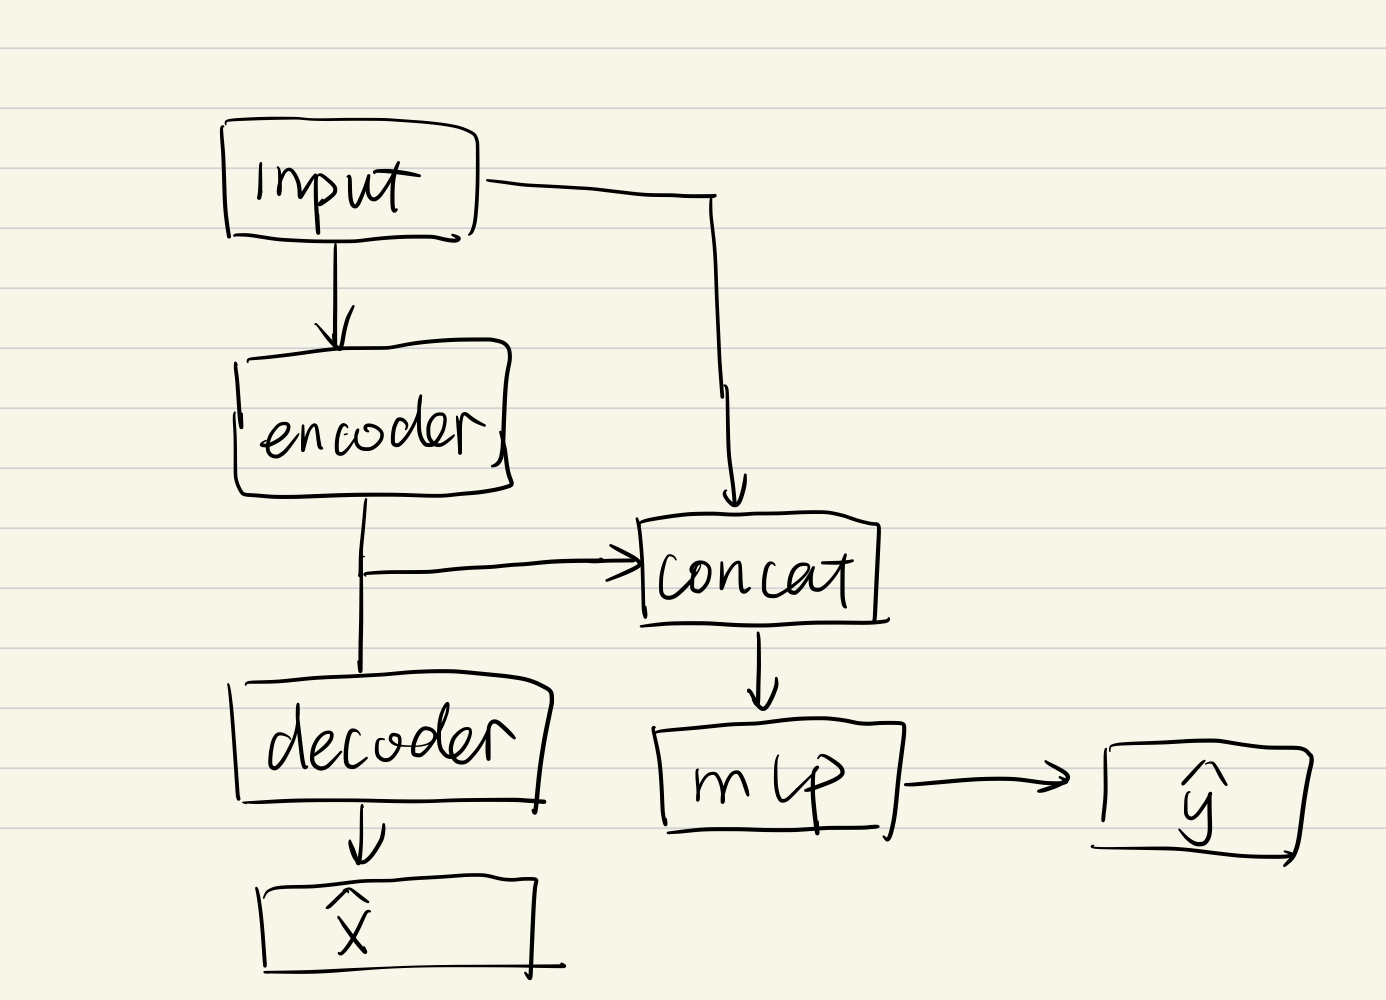 input
encoder
concat
decoder
mlp
ŷ
x̂